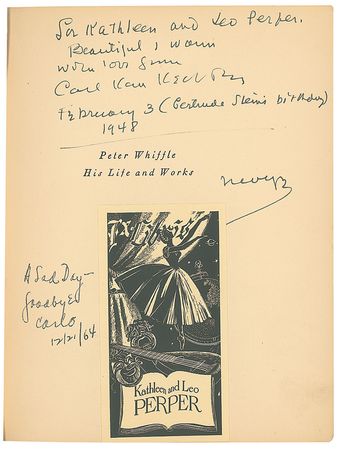 For Kathleen and Leo Perper.
Beautiful, warm
with love from
Carl Van Vechten
February 3 (Gertrude Stein's birthday)
1948
Peter Whiffle
His Life and Works
A Sad Day—
Goodbye
Carlo
12/21/64
Ex Libris
Kathleen and Leo
PERPER